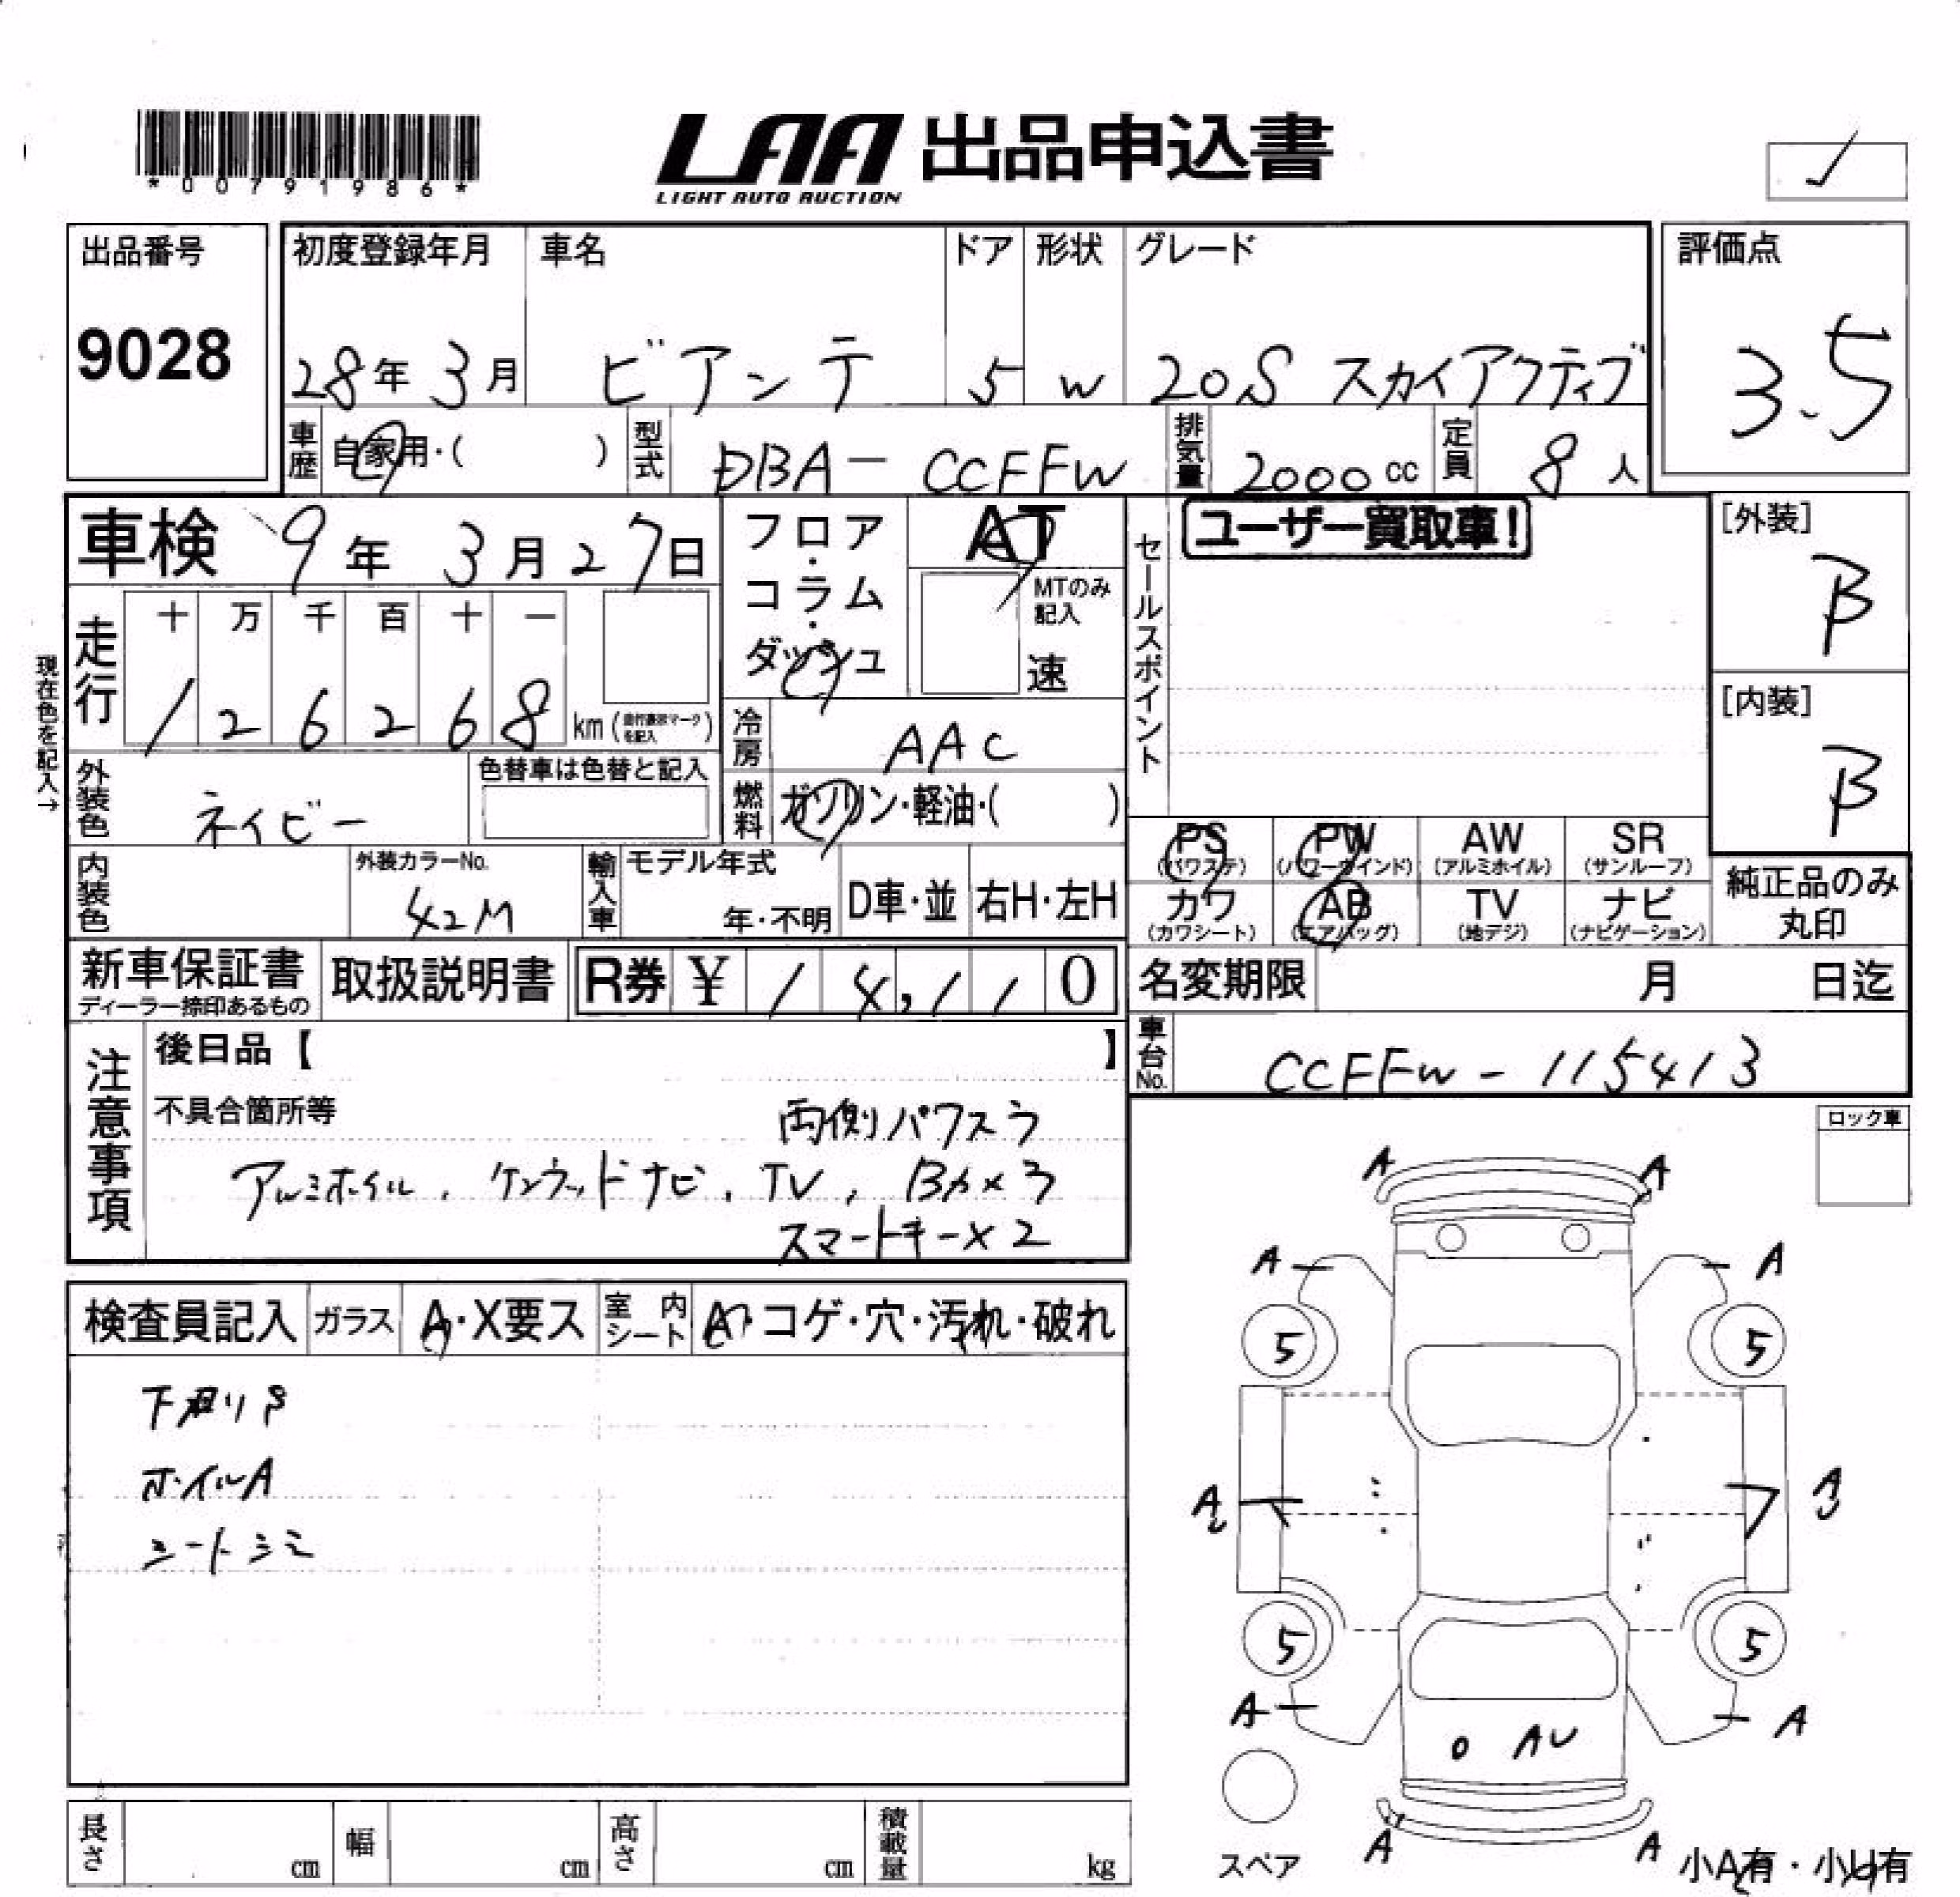 *00791986*
LAA 出品申込書
LIGHT AUTO AUCTION
✓
出品番号
9028
初度登録年月
28年 3月
車名
ビアンテ
ドア
5
形状
W
グレード
20S スカイアクティブ
評価点
3.5
車歴
自家用・( )
型式
DBA-CCFFW
排気量
2000 cc
定員
8 人
車検 9年 3月 27日
フロア・コラム・ダッシュ
AT
MTのみ記入
速
セールスポイント
ユーザー買取車!
[外装]
B
[内装]
B
現在色を記入→
走行
十 万 千 百 十 一
1 2 6 2 6 8 km
冷房
AAC
燃料
ガソリン・軽油・( )
外装色
ネイビー
色替車は色替と記入
内装色
外装カラーNo.
42M
輸入車
モデル年式
年・不明
D車・並
右H・左H
PS (パワステ)
PW (パワーウインド)
AW (アルミホイル)
SR (サンルーフ)
カワ (カワシート)
AB (エアバッグ)
TV (地デジ)
ナビ (ナビゲーション)
純正品のみ丸印
新車保証書
ディーラー捺印あるもの
取扱説明書
R券 ¥ 14,110
名変期限 月 日迄
車台No.
CCFFW-115413
注意事項
後日品【 】
不具合箇所等
両側パワスラ
アルミホイル, ケンウッドナビ, TV, Bカ×3
スマートキー×2
ロック車
検査員記入
ガラス
A・X要ス
室内シート
A・コゲ・穴・汚れ・破れ
ホイルA
シートシミ
A A
A A
5 5
A A
5 5
A A
AU
A A
スペア
小A有・小U有
長さ cm
幅 cm
高さ cm
積載量 kg